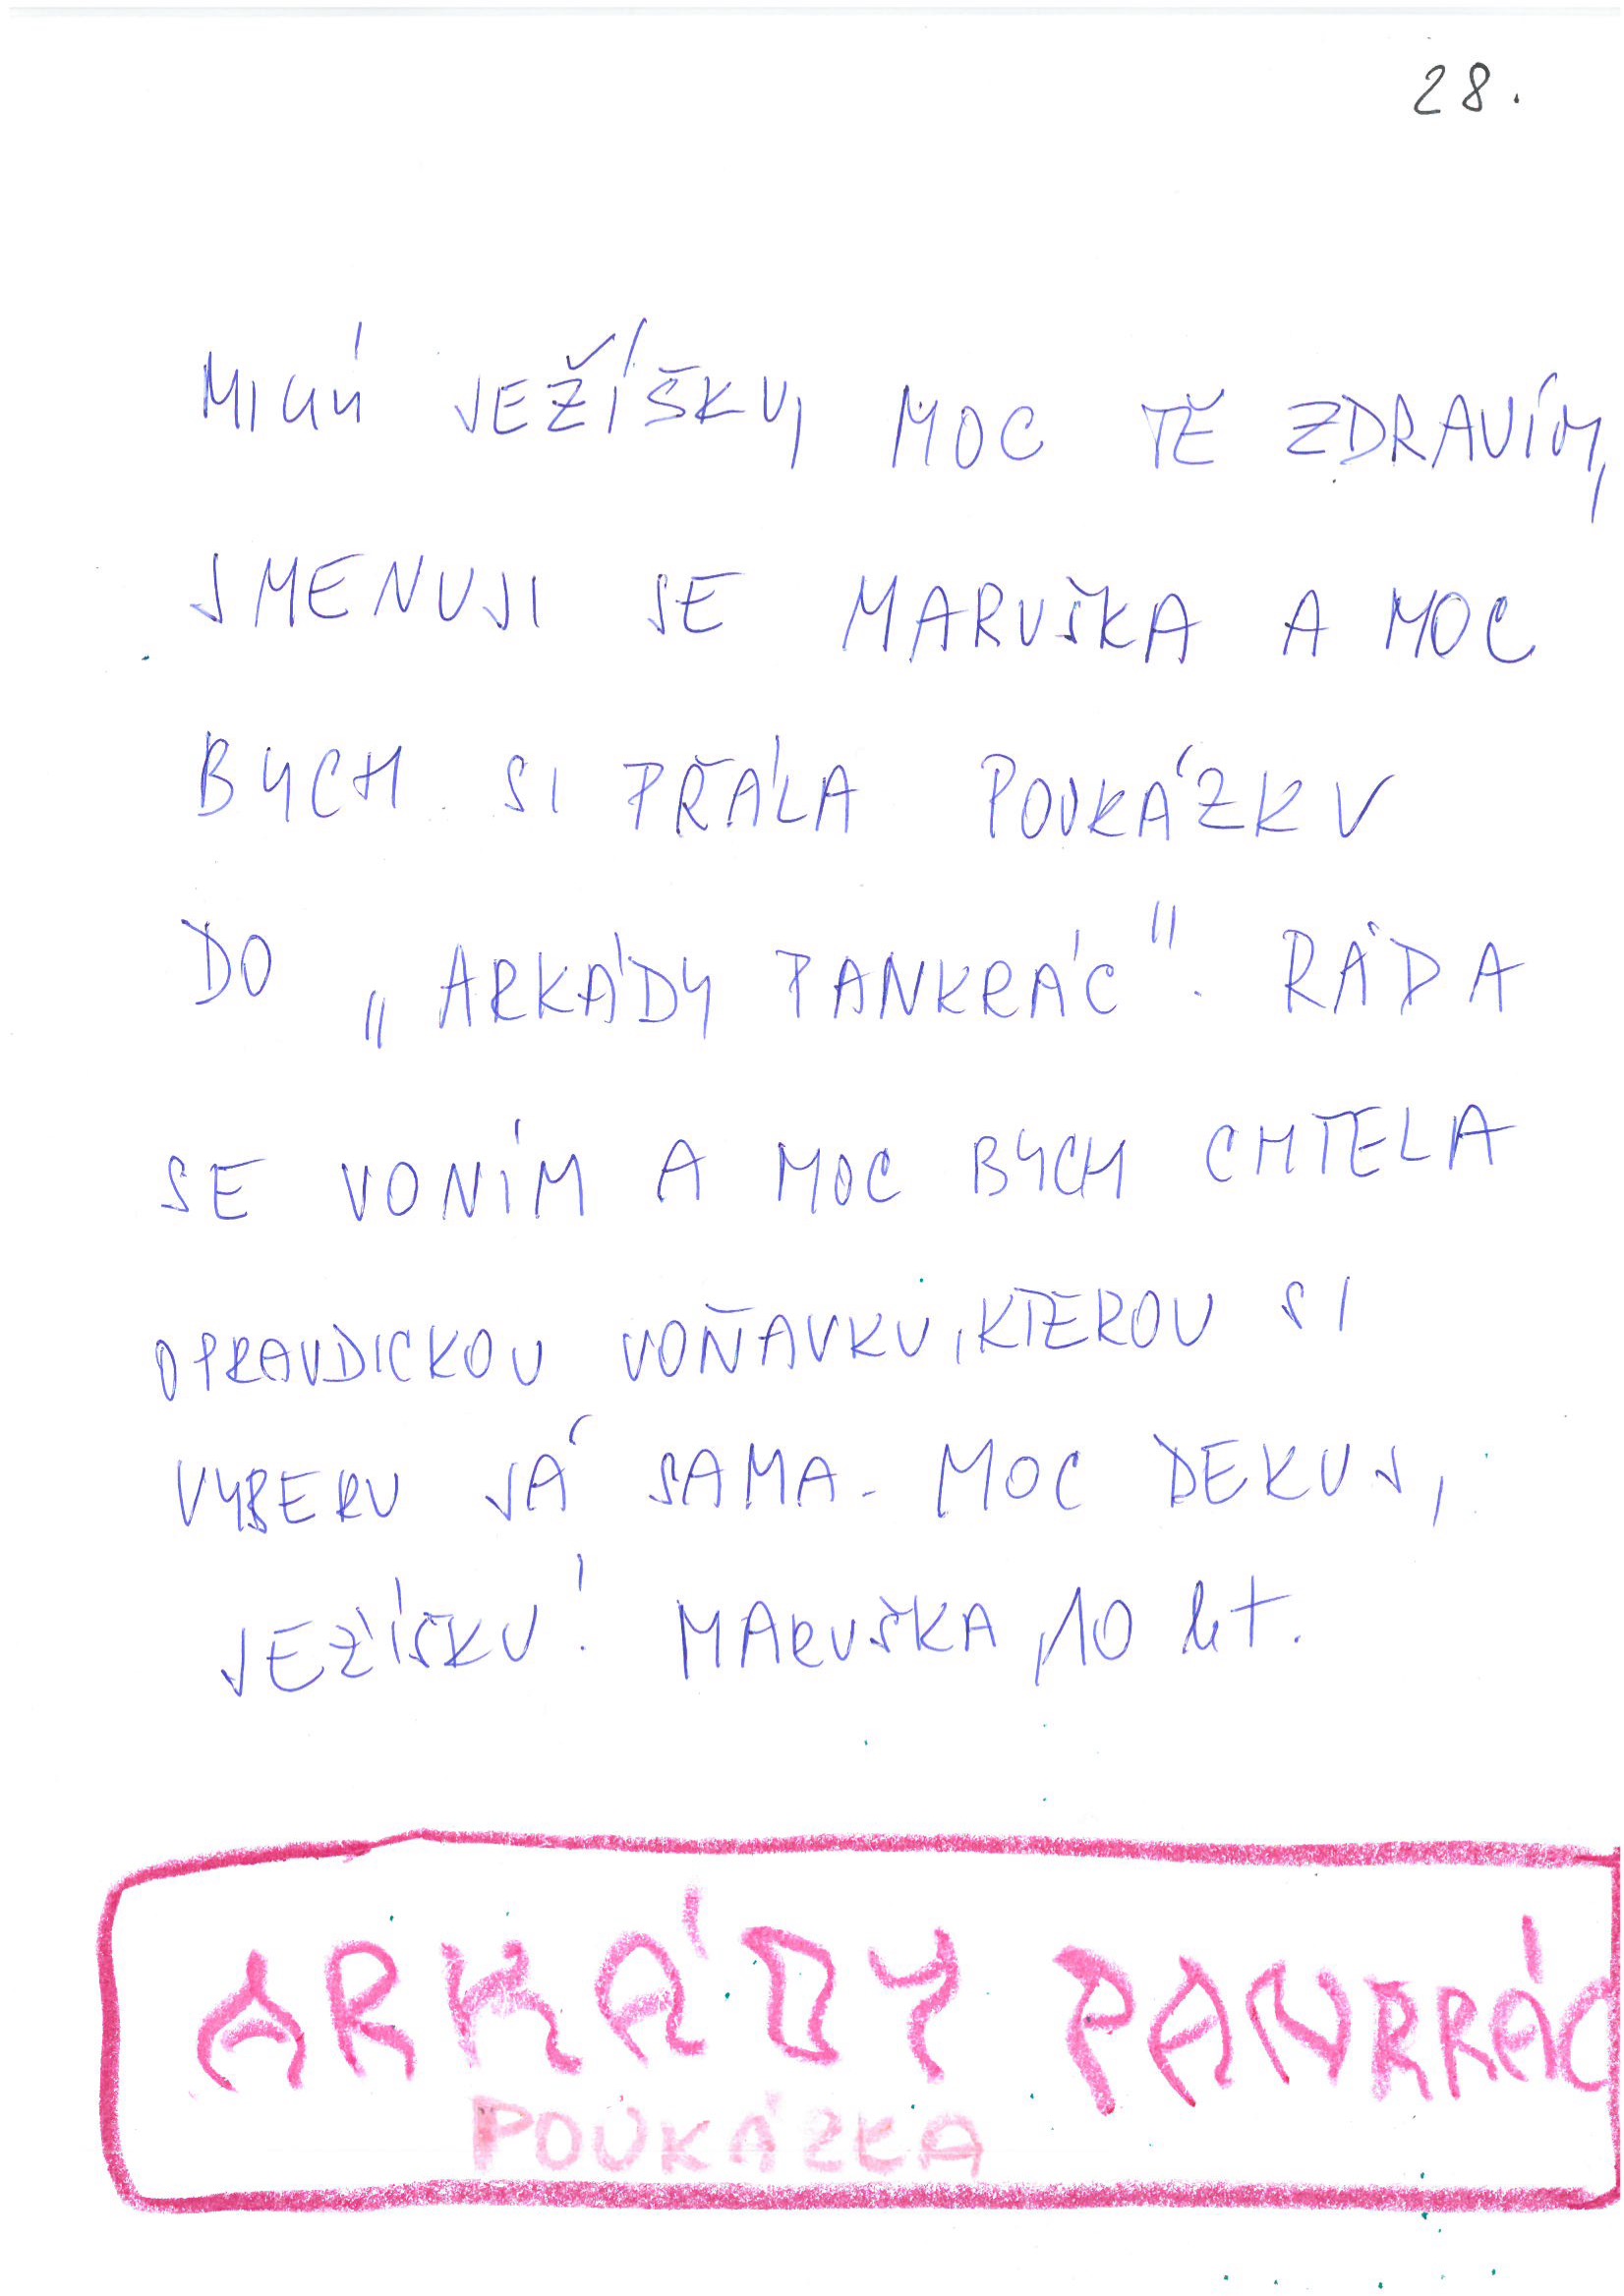 28.
MILÝ JEŽÍŠKU, MOC TĚ ZDRAVÍM,
JMENUJI SE MARUŠKA A MOC
BYCH SI PŘÁLA POUKÁZKU
DO „ARKÁDY PANKRÁC". RÁDA
SE VONÍM A MOC BYCH CHTELA
OPRAVDICKOU VOŇAVKU, KTEROU SI
VYBERU JÁ SAMA. MOC DEKUJ,
JEŽÍŠKU! MARUŠKA, 10 let.
ARKÁDY PANKRÁC
POUKÁZKA